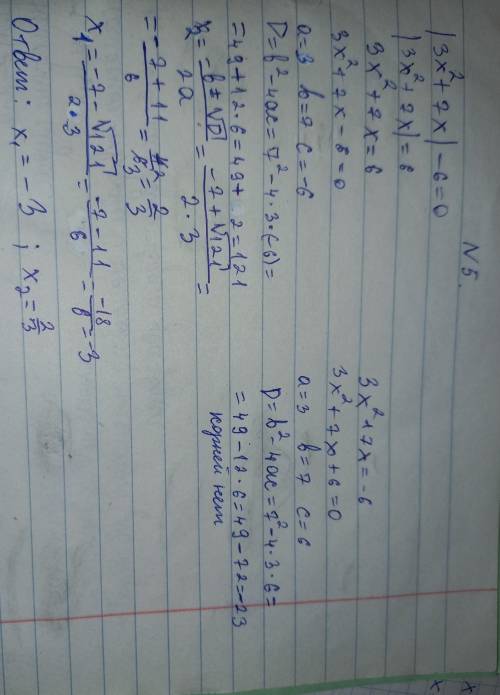 N5.
|3x²+7x|-6=0
|3x²+7x|=6
3x²+7x=6
3x²+7x-6=0
a=3 b=7 c=-6
D=b²-4ac=7²-4·3·(-6)=
=49+12·6=49+72=121
x₂=-b±√D/2a=-7+√121/2·3=
=-7+11/6=4/6=2/3
x₁=-7-√121/2·3=-7-11/6=-18/6=-3
3x²+7x=-6
3x²+7x+6=0
a=3 b=7 c=6
D=b²-4ac=7²-4·3·6=
=49-12·6=49-72=-23
корней нет
Ответ: x₁=-3; x₂=2/3